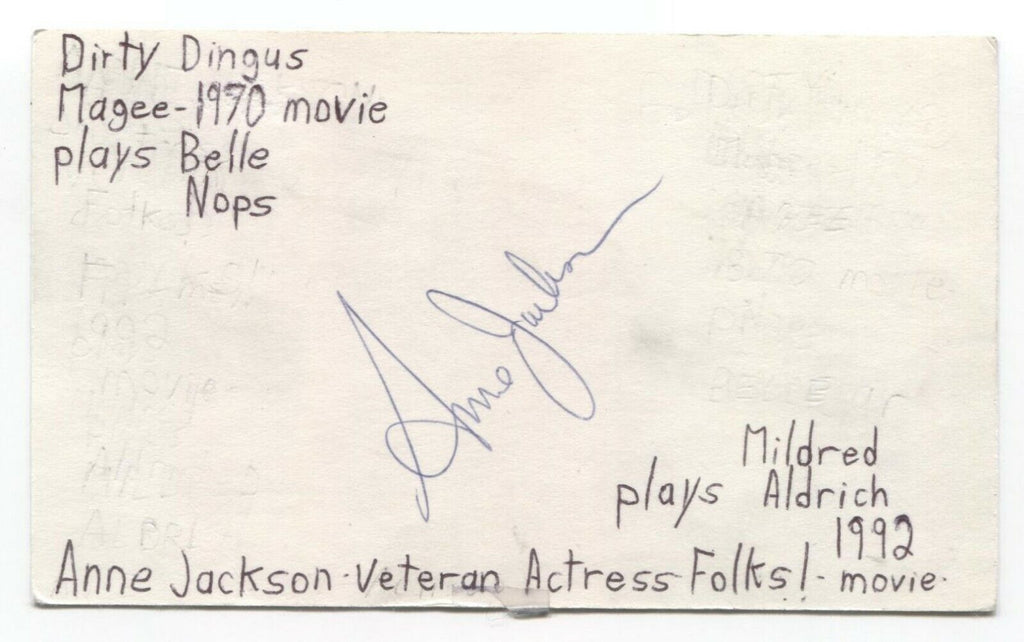 Dirty Dingus
Magee-1970 movie
plays Belle
Nops
Anne Jackson
Mildred
plays Aldrich
1992
Anne Jackson-Veteran Actress-Folks!-movie-